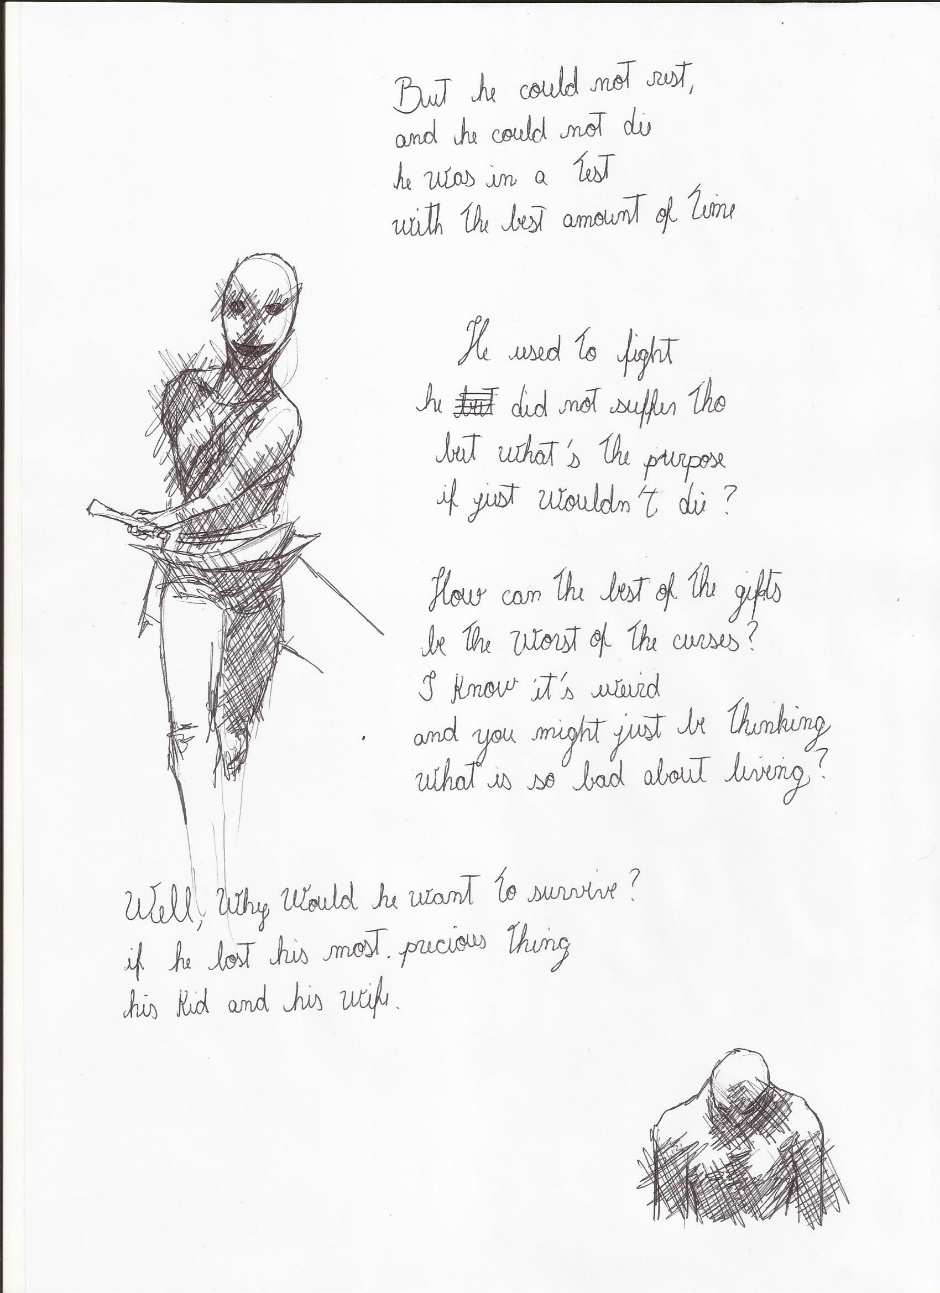 But he could not rest,
and he could not die
he was in a test
with the best amount of time
He used to fight
he but did not suffer tho
but what's the purpose
if just wouldn't die?
How can the best of the gifts
be the worst of the curses?
I know it's weird
and you might just be thinking
what is so bad about living?
Well, Why Would he want to survive?
if he lost his most. precious thing
his kid and his wife.